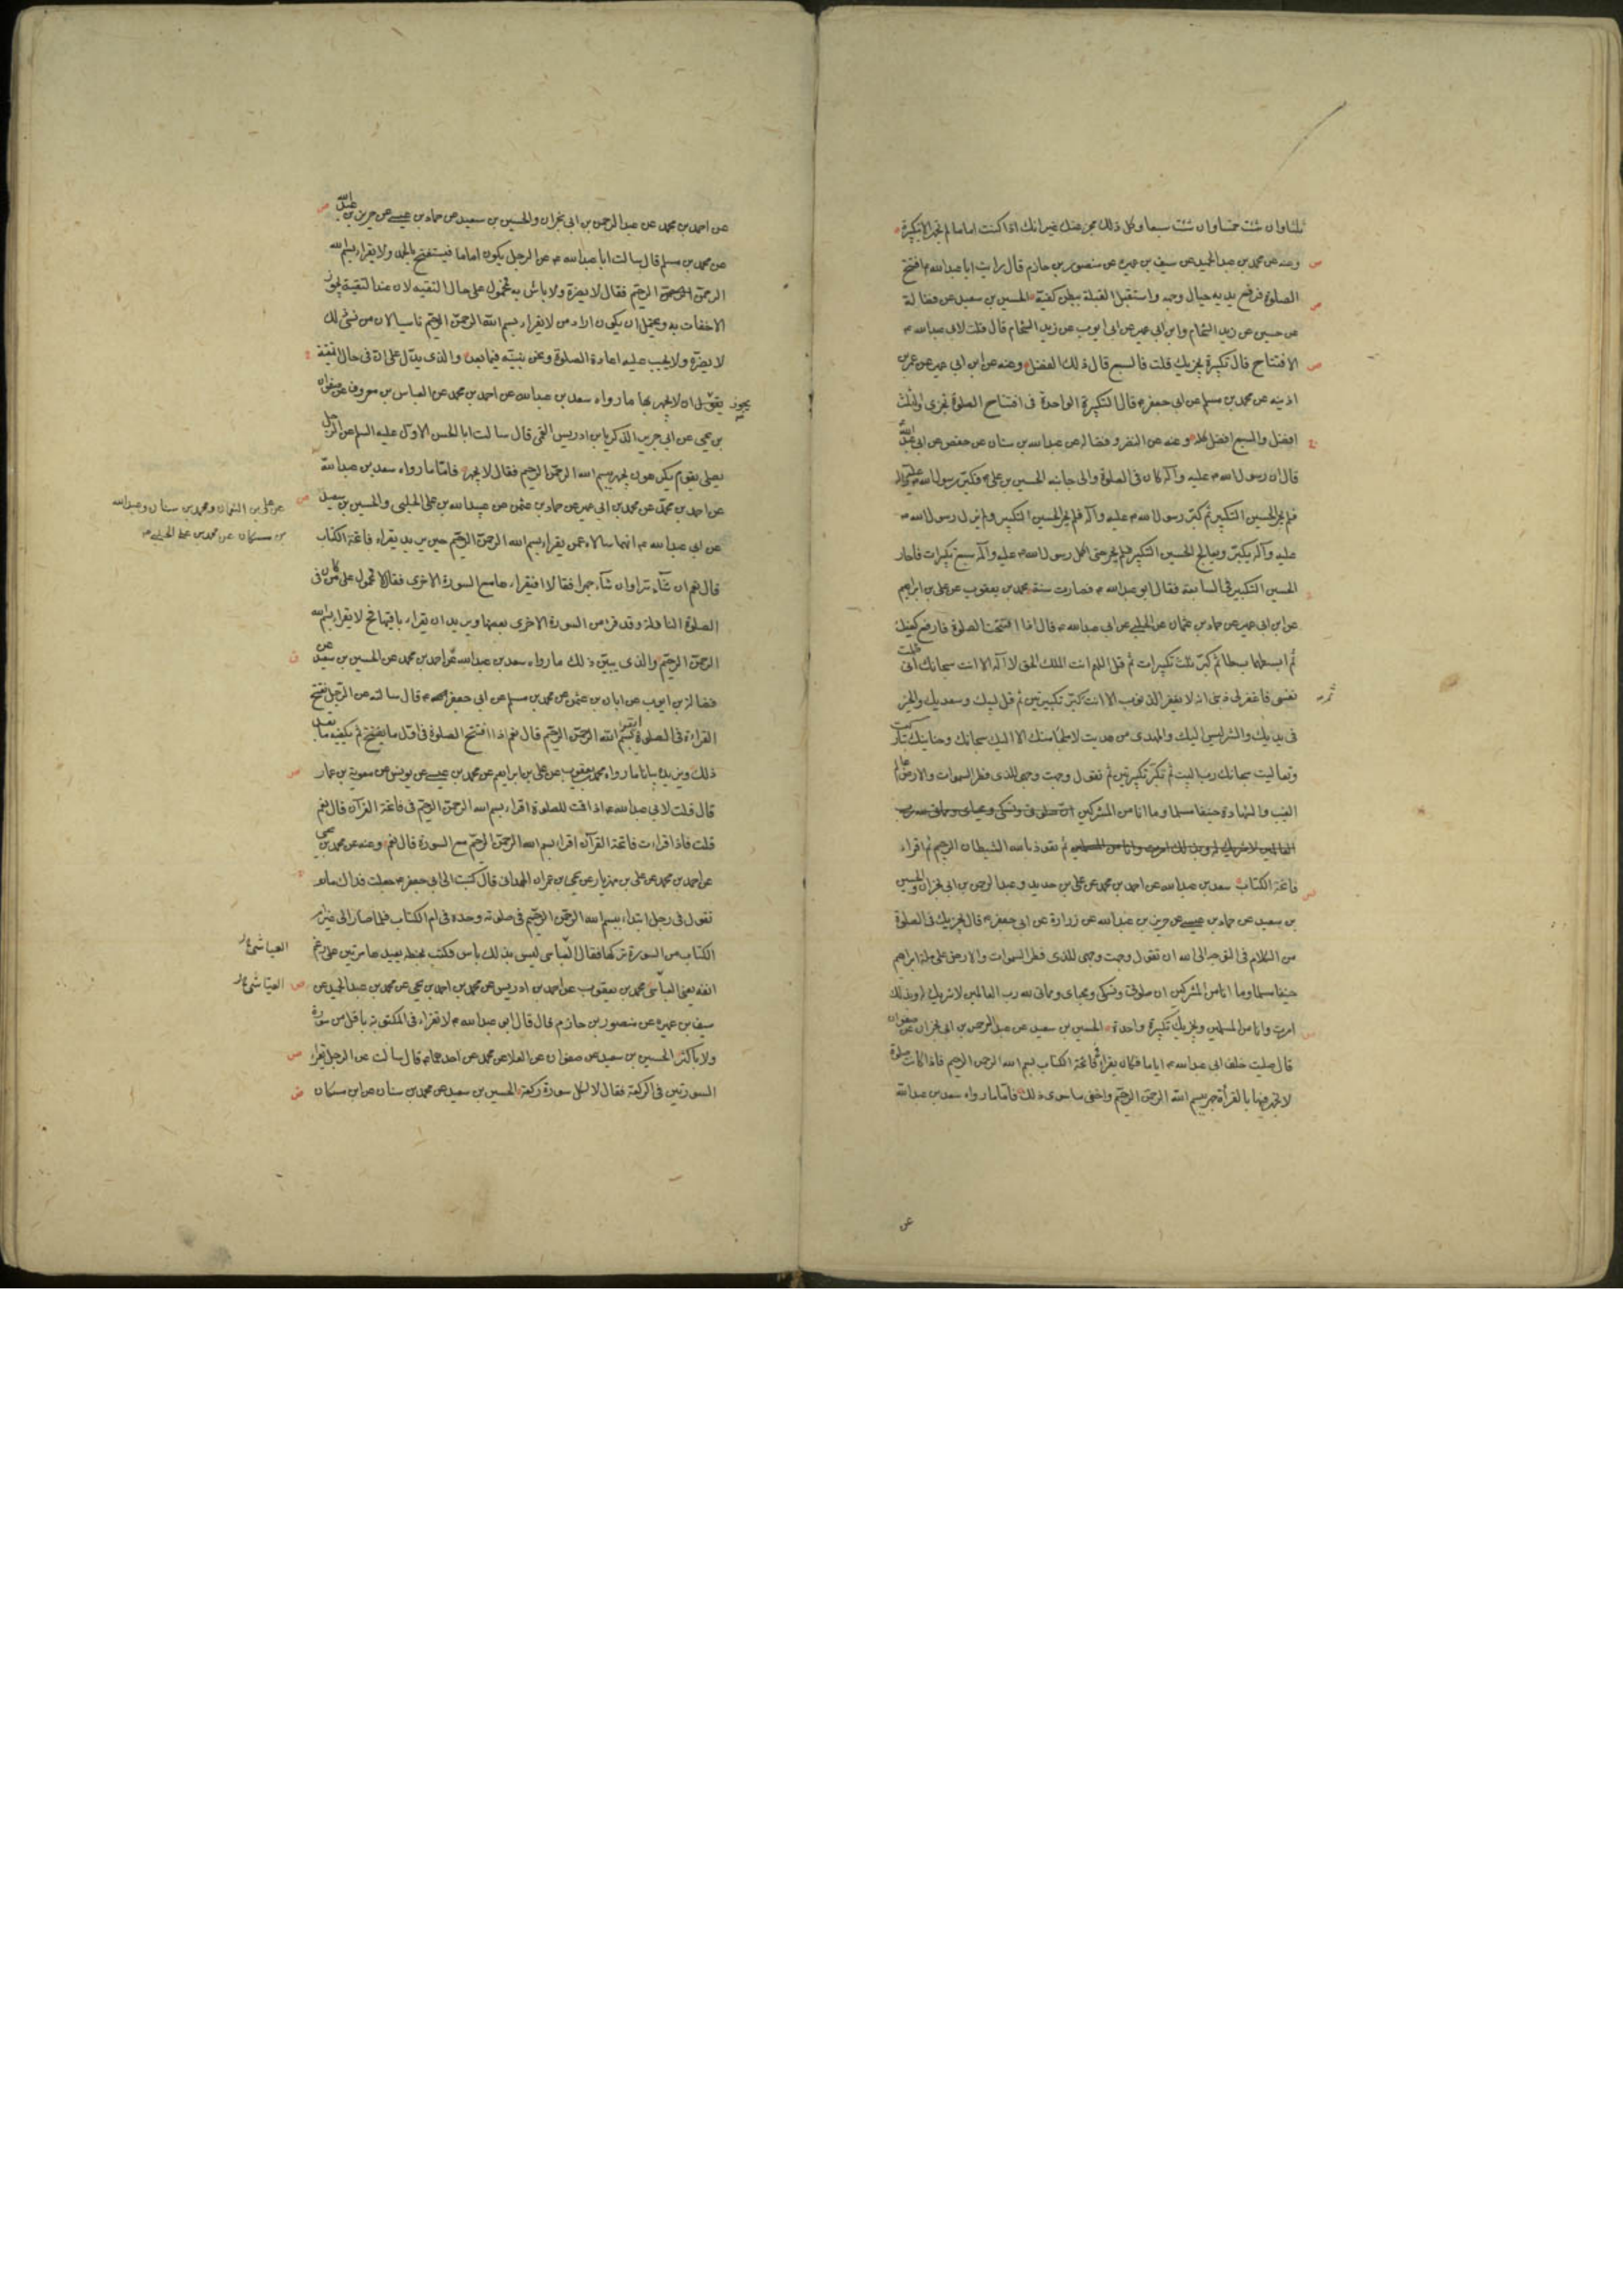 ثلثا وان شئت خمسا وان شئت سبعا وكل ذلك مجز عنك غير انك اذا كنت اماما لم تجهر الا بتكبيرة
وعنه عن محمد بن عبد الحميد عن سيف بن عميره عن منصور بن حازم قال رايت ابا عبدالله ع افتتح
الصلوة فرفع يديه حيال وجهه واستقبل القبلة ببطن كفيه الحسين بن سعيد عن فضالة
عن حسين عن زيد الشحام وابن ابي عمير عن ابي ايوب عن زيد الشحام قال قلت لابي عبدالله ع
الافتتاح قال تكبيرة تجزيك قلت فالسبع قال ذلك الفضل وعنه عن ابن ابي عمير عن عمر بن
اذينه عن محمد بن مسلم عن ابي جعفر ع قال التكبيرة الواحدة في افتتاح الصلوة تجزى والثلث
افضل والسبع افضل كله وعنه عن النضر وفضاله عن عبدالله بن سنان عن حفص عن ابي عبدالله
قال ان رسول الله ص عليه وآله كان في الصلوة والى جانبه الحسين بن علي ع فكبر رسول الله ص عليه وآله
فلم يحر الحسين التكبير ثم كبر رسول الله ص عليه وآله فلم يحر الحسين التكبير ولم يزل رسول الله ص
عليه وآله يكبر ويعالج الحسين التكبير فلم يحر حتى اكمل رسول الله ص عليه وآله سبع تكبيرات فاحار
الحسين التكبير في السابعة فقال ابو عبدالله ع فصارت سنة محمد بن يعقوب عن علي بن ابراهيم
عن ابن ابي عمير عن حماد بن عثمان عن الحلبي عن ابي عبدالله ع قال اذا افتتحت الصلوة فارفع كفيك
ثم ابسطهما بسطا ثم كبر ثلث تكبيرات ثم قل اللهم انت الملك الحق لا اله الا انت سبحانك انى ظلمت
نفسى فاغفر لى ذنبى انه لا يغفر الذنوب الا انت ثم كبر تكبيرتين ثم قل لبيك وسعديك والخير
في يديك والشر ليس اليك والمهدى من هديت لا ملجا منك الا اليك سبحانك وحنانيك تباركت
وتعاليت سبحانك رب البيت ثم تكبر تكبيرتين ثم تقول وجهت وجهى للذى فطر السموات والارض عالم
الغيب والشهادة حنيفا مسلما وما انا من المشركين ان صلوتى ونسكى ومحياى ومماتى لله رب
العالمين لا شريك له وبذلك امرت وانا من المسلمين ثم تعوذ بالله الشيطان الرجيم ثم اقراء
فاتحة الكتاب سعد بن عبدالله عن احمد بن محمد عن علي بن حديد وعبد الرحمن بن ابى نجران والحسين
بن سعيد عن حماد بن عيسى عن حريز بن عبدالله عن زرارة عن ابي جعفر ع قال يجزيك في الصلوة
من الكلام في التوجه الى الله ان تقول وجهت وجهى للذى فطر السموات والارض على ملة ابراهيم
حنيفا مسلما وما انا من المشركين ان صلوتى ونسكى ومحياى ومماتى لله رب العالمين لا شريك له وبذلك
امرت وانا من المسلمين ويجزيك تكبيرة واحدة الحسين بن سعيد عن عبد الرحمن بن ابى نجران عن صفوان
قال صليت خلف ابى عبدالله ع اياما فكان يقراء فى فاتحة الكتاب بسم الله الرحمن الرحيم فاذا كانت صلوة
لا تجهر فيها بالقرأة جهر ببسم الله الرحمن الرحيم واخفى ما سوى ذلك فاما ما رواه سعد بن عبدالله
عن
عن احمد بن محمد عن عبد الرحمن بن ابي نجران والحسين بن سعيد عن حماد بن عيسى عن حريز بن عبدالله
عن محمد بن مسلم قال سالت ابا عبدالله ع عن الرجل يكون اماما فيستفتح بالحمد ولا يقراء بسم الله
الرحمن الرحيم فقال لا يضره ولا باس به فمحمول على حال التقيه لان عند التقية يجوز
الاخفات به ويحتمل ان يكون اراد من لا يقراء بسم الله الرحمن الرحيم ناسيا لان من نسى ذلك
لا يضره ولا يجب عليه اعادة الصلوة ونحن نبينه فيما بعد والذى يدل على انه في حال التقية
يجوز
يقول ان لا يجهر بها ما رواه سعد بن عبدالله عن احمد بن محمد عن العباس بن معروف عن صفوان
بن يحيى عن ابي جرير الذكريا بن ادريس القمي قال سالت ابا الحسن الاول عليه السلم عن الرجل
يصلى بقوم يكرهون يجهر ببسم الله الرحمن الرحيم فقال لا يجهر فاما ما رواه سعد بن عبدالله
عن احمد بن محمد عن محمد بن ابي عمير عن حماد بن عثمن عن عبيدالله بن على الحلبى والحسين بن سعيد
عن على بن النعمان ومحمد بن سنان وعبدالله
بن مسكان عن محمد بن على الحلبى
عن ابى عبدالله ع انهما سالاه عمن يقراء بسم الله الرحمن الرحيم حين يريد يقراء فاتحة الكتاب
قال نعم ان شاء سرا وان شاء جهرا فقالا افيقراءها مع السورة الاخرى فقال لا فمحمول على من كان فى
الصلوة النافلة وقد قرا من السورة الاخرى بعضها ويريد ان يقراء باقيها فح لا يقراء بسم الله
الرحمن الرحيم والذى يبين ذلك ما رواه سعد بن عبدالله عن احمد بن محمد عن الحسين بن سعيد عن
فضالة بن ايوب عن ابان بن عثمن عن محمد بن مسلم عن ابى جعفر ع قال سالته عن الرجل يفتتح
القراءة فى الصلوة ايقراء بسم الله الرحمن الرحيم قال نعم اذا افتتح الصلوة فى اول ما يفتتح ثم يكفيه ما بعد
ذلك ويزيده بيانا ما رواه محمد بن يعقوب عن على بن ابراهيم عن محمد بن عيسى عن يونس عن معوية بن عمار
قال قلت لابى عبدالله ع اذا قمت للصلوة اقراء بسم الله الرحمن الرحيم فى فاتحة القرآن قال نعم
قلت فاذا اقراءت فاتحة القرآن اقراء بسم الله الرحمن الرحيم مع السورة قال نعم وعنه عن محمد بن يحيى
عن احمد بن محمد عن على بن مهزيار عن يحيى بن عمران الهمدانى قال كتبت الى ابى جعفر ع جعلت فداك ما
تقول فى رجل ابتداء ببسم الله الرحمن الرحيم فى صلوته وحده فى ام الكتاب فلما صار الى غير ام
الكتاب من السورة تركها فقال العباسى ليس بذلك باس فكتب بخطه يعيدها مرتين على رغم
العياشى
انفه يعنى العباسى محمد بن يعقوب عن احمد بن ادريس عن محمد بن احمد بن يحيى عن محمد بن عبد الحميد عن
العياشى
سيف بن عميره عن منصور بن حازم قال قال ابو عبدالله ع لا تقراء فى المكتوبة باقل من سورة
ولا باكثر الحسين بن سعيد عن صفوان عن العلا عن محمد عن احدهما ع قال سالت عن الرجل يقراء
السورتين فى الركعة فقال لا لكل سورة ركعة الحسين بن سعيد عن محمد بن سنان عن ابن مسكان